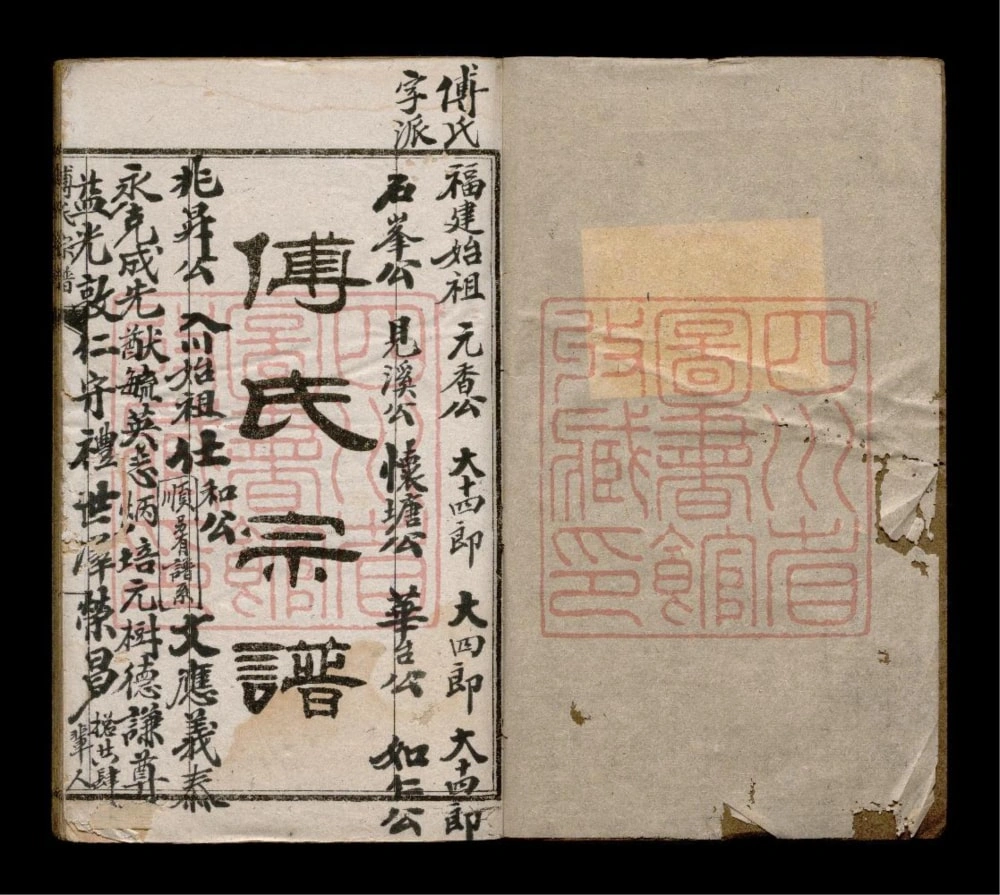 四川省
圖書館
收藏印
傅氏
字派
福建始祖 元香公 大十四郎 大四郎 大十四郎
石峯公 見溪公 懷塘公 華台公 如仁公
傅氏宗譜
兆昇公 入川始祖仕和公 文應義泰
順看譜系
永克成先猷毓英志炳培元樹德謙尊
益光敦仁守禮世澤榮昌
輩人
傅氏宗譜